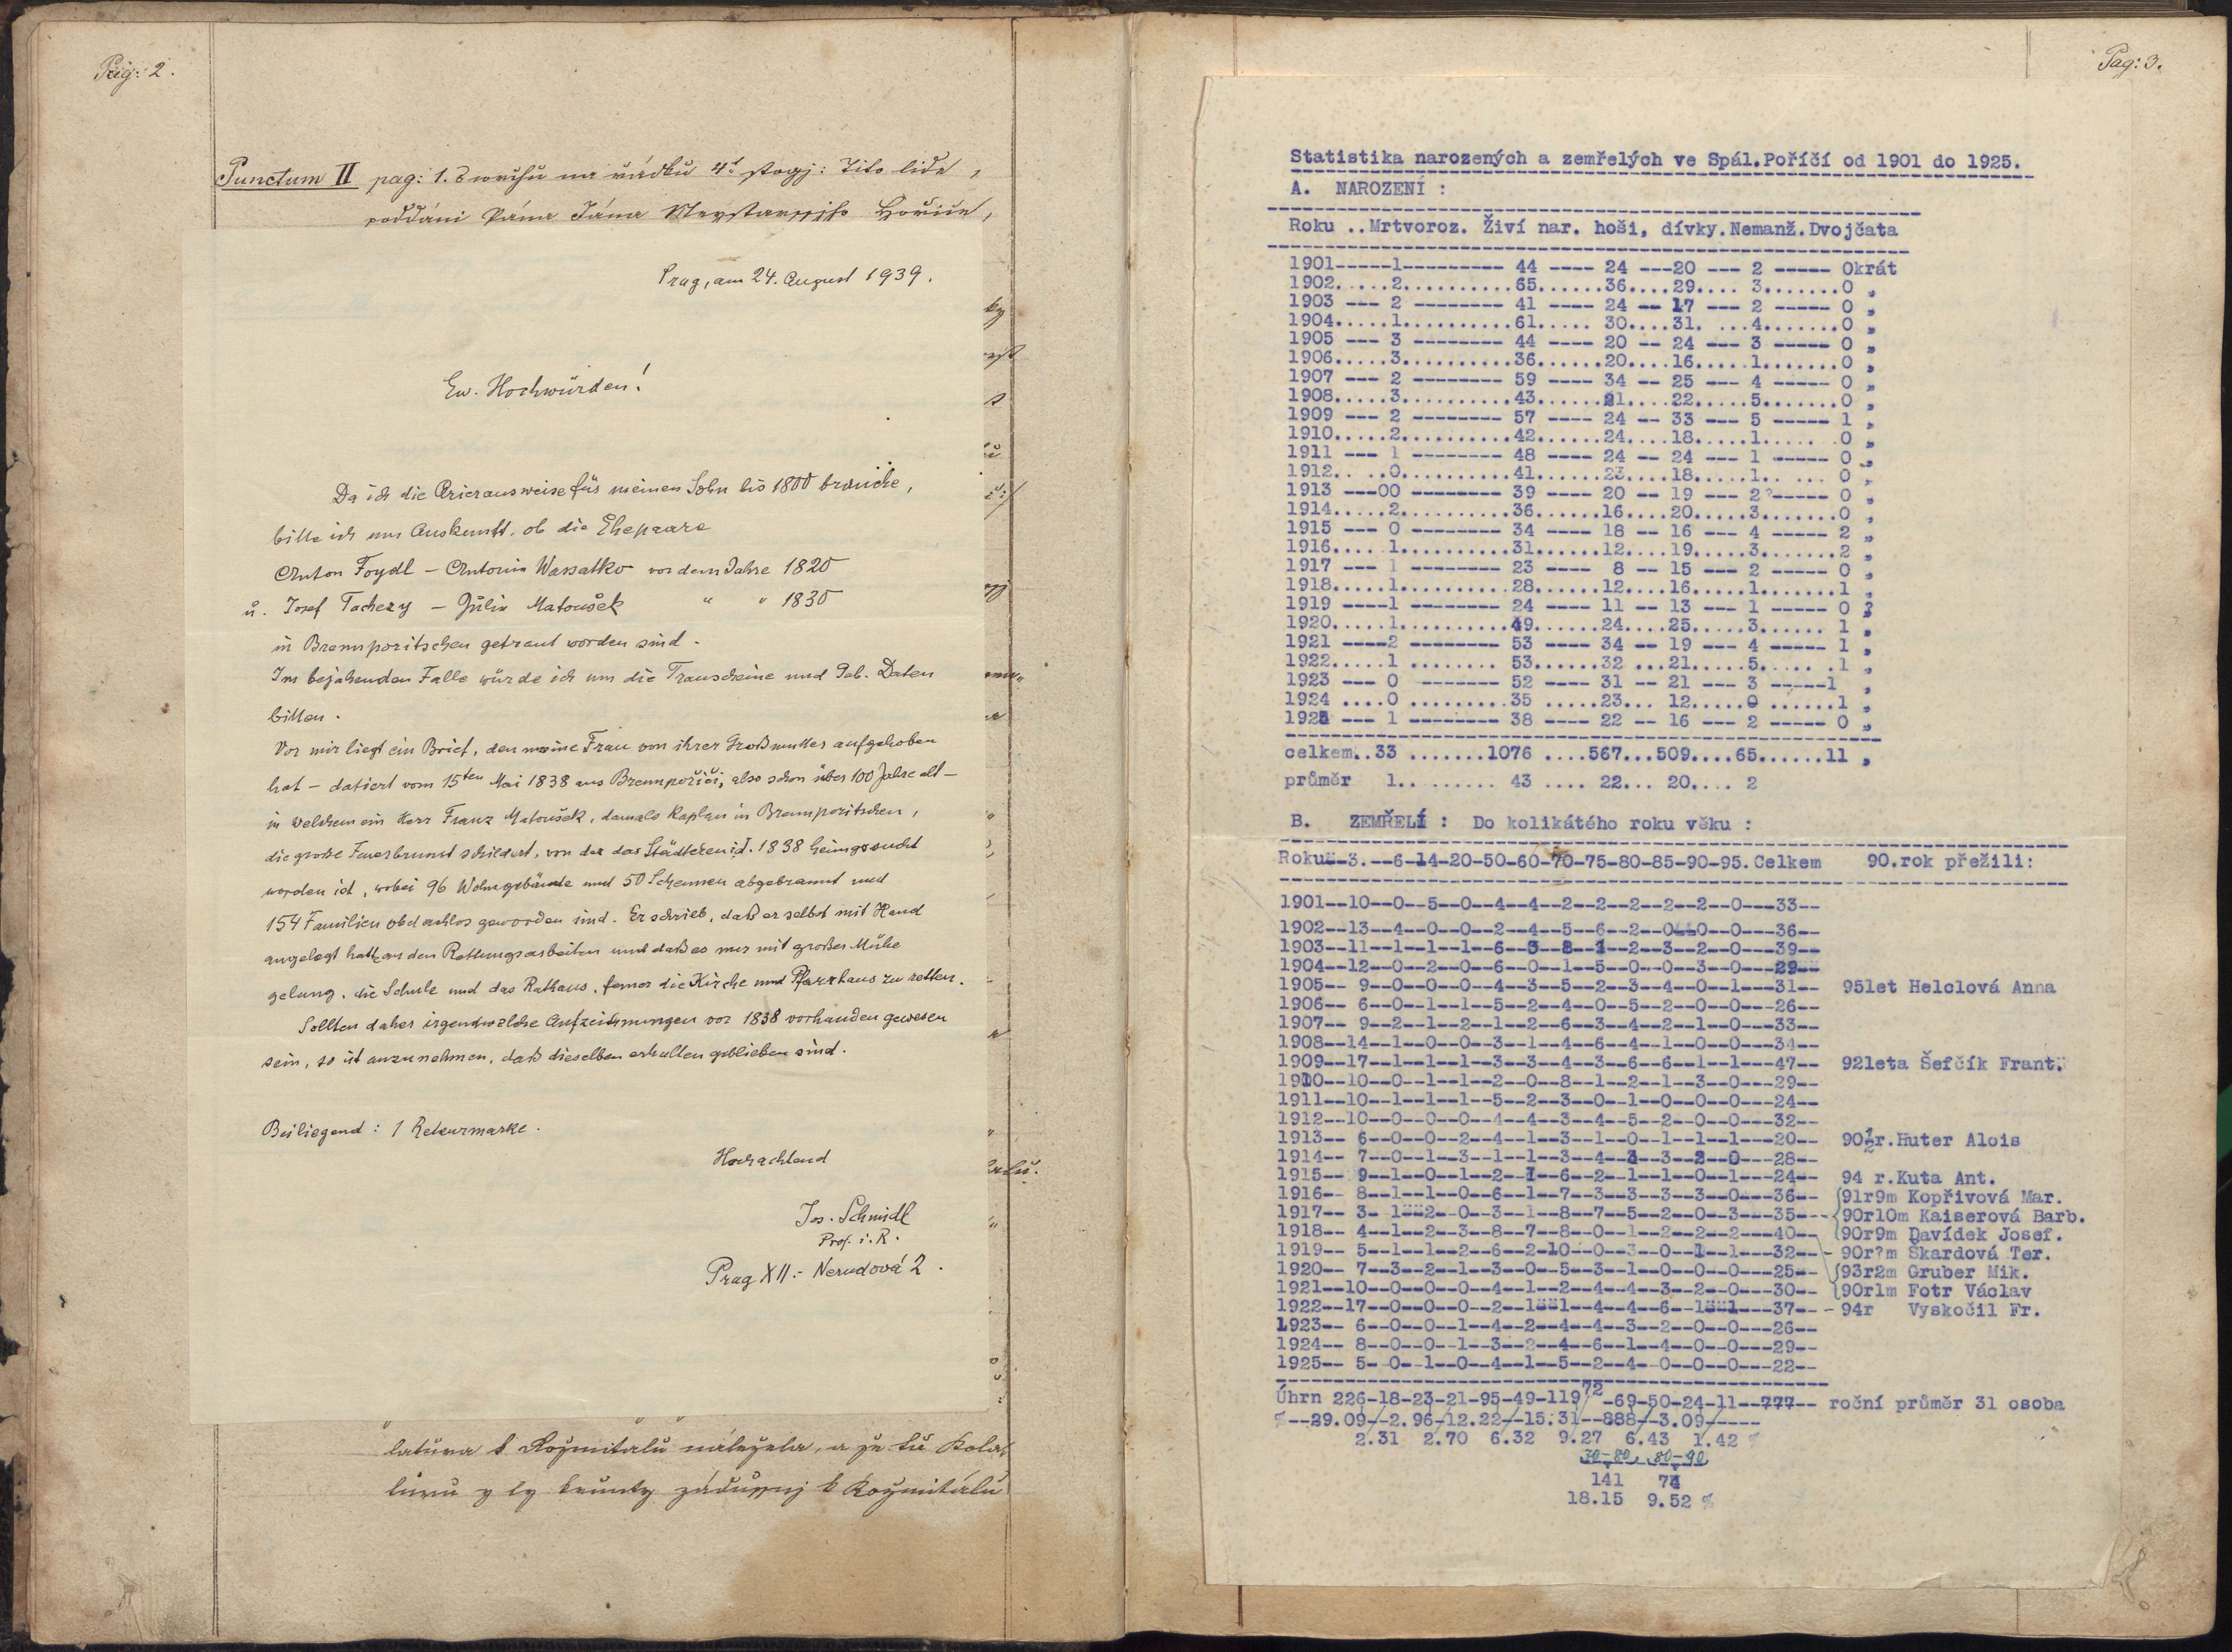 Pag: 2.
Punctum II pag: 1. na řádku 4t stogj: Tito lidé,
poddáni Pána Jána Hořice,
Prag, am 24. August 1939.
Ew. Hochwürden!
Da ich die Arierausweise für meinen Sohn bis 1800 brauche,
bitte ich um Auskunft, ob die Ehepaare
Anton Foydl – Antonia Wassatko vor dem Jahre 1820
u. Josef Tachezy – Julia Matoušek " " 1830
in Brennporitschen getraut worden sind.
Im bejahenden Falle würde ich um die Trauscheine und Geb. Daten
bitten.
Vor mir liegt ein Brief, den meine Frau von ihrer Großmutter aufgehoben
hat – datiert vom 15ten Mai 1838 aus Brennpořiči, also schon über 100 Jahre alt –
in welchem ein Herr Franz Matoušek, damals Kaplan in Brennporitschen,
die große Feuersbrunst schildert, von der das Städtchen i.J. 1838 heimgesucht
worden ist, wobei 96 Wohngebäude und 50 Scheunen abgebrannt und
154 Familien obdachlos geworden sind. Er schrieb, daß er selbst mit Hand
angelegt hatte an den Rettungsarbeiten und daß es nur mit großer Mühe
gelang, die Schule und das Rathaus, ferner die Kirche und Pfarrhaus zu retten.
Sollten daher irgendwelche Aufzeichnungen vor 1838 vorhanden gewesen
sein, so ist anzunehmen, daß dieselben erhalten geblieben sind.
Beiliegend: 1 Retourmarke.
Hochachtend
Jos. Schmidl
Prof. i. R.
Prag XII:- Nerudová 2.
latura k Rožmitalu náležela, a že tu Kola
turu y ty k Rožmitálu
Pag: 3.
Statistika narozených a zemřelých ve Spál.Poříčí od 1901 do 1925.
A. NAROZENÍ :
Roku ..Mrtvoroz. Živí nar. hoši, dívky.Nemanž.Dvojčata
1901-----1--------- 44 ---- 24 ---20 --- 2 ----- 0krát
1902.....2..........65......36....29.... 3.......0 „
1903 --- 2 -------- 41 ---- 24 -- 17 --- 2 ----- 0 „
1904.....1..........61..... 30....31. ...4.......0 „
1905 --- 3 -------- 44 ---- 20 -- 24 --- 3 ----- 0 „
1906.....3..........36......20....16.....1.......0 „
1907 --- 2 -------- 59 ---- 34 -- 25 --- 4 ----- 0 „
1908.....3..........43......21....22.....5.......0 „
1909 --- 2 -------- 57 ---- 24 -- 33 --- 5 ----- 1 „
1910.....2..........42......24....18.....1..... .0 „
1911 --- 1 -------- 48 ---- 24 -- 24 --- 1 ----- 0 „
1912.. ..0..........41......23....18.....1.. ... 0 „
1913 ---00 -------- 39 ---- 20 -- 19 --- 2?----- 0 „
1914.....2..........36......16....20.....3.......0 „
1915 --- 0 -------- 34 ---- 18 -- 16 --- 4 ----- 2 „
1916.... 1..........31......12....19.....3.......2 „
1917 --- 1 -------- 23 ---- 8 -- 15 --- 2 ----- 0 „
1918.....1..........28......12....16.....1.......1 „
1919 ----1 -------- 24 ---- 11 -- 13 --- 1 ----- 0 ?
1920.....1..........49......24....25.....3...... 1 „
1921 ----2 -------- 53 ---- 34 -- 19 --- 4 ----- 1 „
1922.....1 ........ 53......32 ...21.....5..... .1 „
1923 --- 0 ------- 52 ---- 31 -- 21 --- 3 -----1 „
1924 ....0 .........35 .....23... 12.....0 ......1 „
1925 --- 1 -------- 38 ---- 22 -- 16 --- 2 ----- 0 „
celkem..33 .......1076 ....567...509....65......11 „
průměr 1.. ...... 43 .... 22... 20.... 2
B. ZEMŘELÍ : Do kolikátého roku věku :
Roku--3.--6-14-20-50-60-70-75-80-85-90-95.Celkem 90.rok přežili:
1901--10--0--5--0--4--4--2--2--2--2--2--0---33--
1902--13--4--0--0--2--4--5--6--2--0--0--0---36--
1903--11--1--1--1--6--3--8--1--2--3--2--0---39--
1904--12--0--2--0--6--0--1--5--0--0--3--0---29--
1905-- 9--0--0--0--4--3--5--2--3--4--0--1---31-- 95let Helclová Anna
1906-- 6--0--1--1--5--2--4--0--5--2--0--0---26--
1907-- 9--2--1--2--1--2--6--3--4--2--1--0---33--
1908--14--1--0--0--3--1--4--6--4--1--0--0---34--
1909--17--1--1--1--3--3--4--3--6--6--1--1---47-- 92leta Šefčík Frant.
1910--10--0--1--1--2--0--8--1--2--1--3--0---29--
1911--10--1--1--1--5--2--3--0--1--0--0--0---24--
1912--10--0--0--0--4--4--3--4--5--2--0--0---32--
1913-- 6--0--0--2--4--1--3--1--0--1--1--1---20-- 90½r.Huter Alois
1914-- 7--0--1--3--1--1--3--4--3--3--2--0---28--
1915-- 9--1--0--1--2--1--6--2--1--1--0--1---24-- 94 r.Kuta Ant.
1916-- 8--1--1--0--6--1--7--3--3--3--3--0---36-- 91r9m Kopřivová Mar.
1917-- 3- 1--2--0--3--1--8--7--5--2--0--3---35-- 90r10m Kaiserová Barb.
1918-- 4--1--2--3--8--7--8--0--1--2--2--2---40-- 90r9m Davídek Josef.
1919-- 5--1--1--2--6--2-10--0--3--0--1--1---32-- 90r?m Škardová Ter.
1920-- 7--3--2--1--3--0--5--3--1--0--0--0---25-- 93r2m Gruber Mik.
1921--10--0--0--0--4--1--2--4--4--3--2--0---30-- 90r1m Fotr Václav
1922--17--0--0--0--2--1--1--4--4--6--1--1---37-- 94r Vyskočil Fr.
1923-- 6--0--0--1--4--2--4--4--3--2--0--0---26--
1924-- 8--0--0--1--3--2--4--6--1--4--0--0---29--
1925-- 5--0--1--0--4--1--5--2--4--0--0--0---22--
Úhrn 226-18-23-21-95-49-119/72-69-50-24-11--777-- roční průměr 31 osoba
%--29.09-/-2.96-/12.22-/-15.31--888-/-3.09-/----
2.31 2.70 6.32 9.27 6.43 1.42 %
70-80, 80-90
141 74
18.15 9.52 %